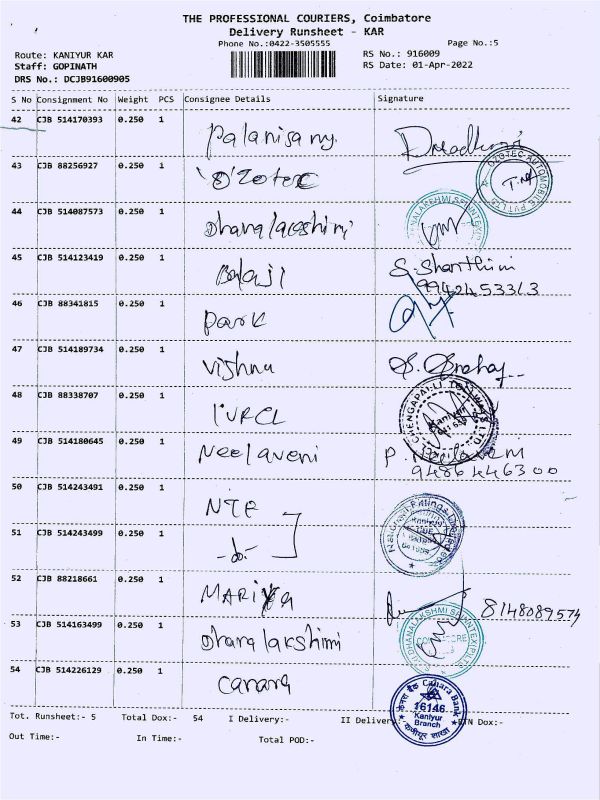 THE PROFESSIONAL COURIERS, Coimbatore
Delivery Runsheet - KAR
Phone No.:0422-3505555 Page No.:5
Route: KANIYUR KAR RS No.: 916009
Staff: GOPINATH RS Date: 01-Apr-2022
DRS No.: DCJB91600905
S No Consignment No Weight PCS Consignee Details Signature
42 CJB 514170393 0.250 1 Palanisamy
43 CJB 88256927 0.250 1 'O'Zotec OZOTEC AUTOMOBILE PVT LTD
44 CJB 514087573 0.250 1 Dhanalakshimi
45 CJB 514123419 0.250 1 Balaji S. Shanthini
9942453313
46 CJB 88341815 0.250 1 Park
47 CJB 514189734 0.250 1 Vishnu
48 CJB 88338707 0.250 1 IVRCL CHENGAPALLI TOLLWAYS LTD Kaniyur
49 CJB 514180645 0.250 1 Neelaveni P. Neelaveni
9486446300
50 CJB 514243491 0.250 1 NTE
51 CJB 514243499 0.250 1 -do-
52 CJB 88218661 0.250 1 MARIYA 8148089574
53 CJB 514163499 0.250 1 Dhanalakshimi DHANALAKSHMI
54 CJB 514226129 0.250 1 Canara Canara Bank
16146
Kaniyur
Branch
Tot. Runsheet:- 5 Total Dox:- 54 I Delivery:- II Delivery:- RTN Dox:-
Out Time:- In Time:- Total POD:-